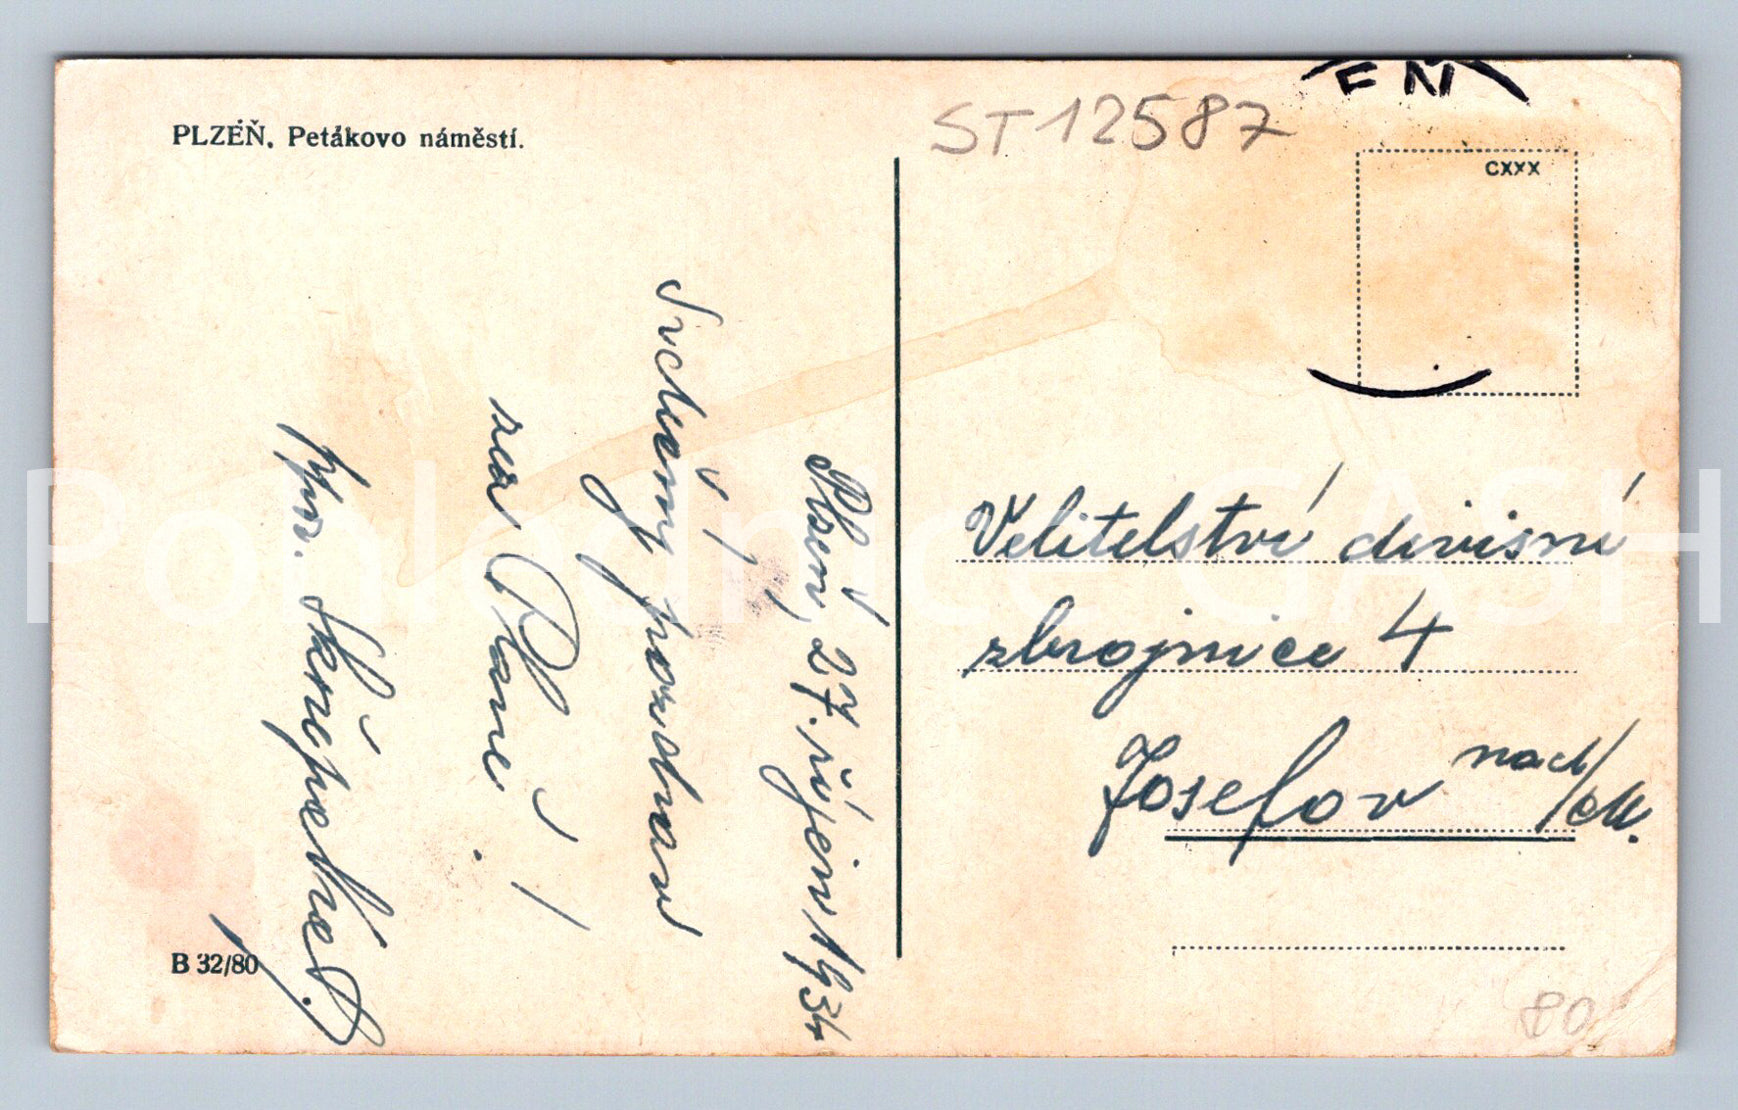 PLZEŇ. Petákovo náměstí.
ST 12587
EŇ
CXXX
Plzeň, 27. říjen 1934
Srdečný pozdrav
ze Plzně!
Velitelství divisní
zbrojnice 4
Josefov nad/
B 32/80
80
Pohlednice GASH